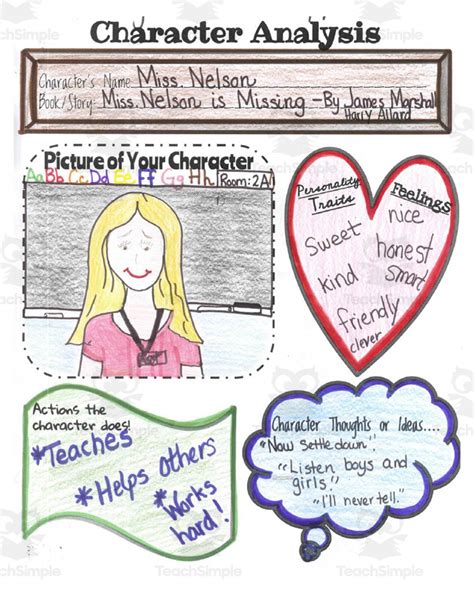 Character Analysis
Character's Name Miss. Nelson
Book/Story: Miss. Nelson is Missing - By James Marshall
Harry Allard
Picture of Your Character
Aa Bb Cc Dd Ee Ff Gg Hh Room: 2A
Personality Traits
Feelings
nice
Sweet
honest
kind
smart
friendly
clever
Actions the
character does!
*Teaches
*Helps others
*Works
hard!
Character Thoughts or Ideas....
"Now settle down!"
"Listen boys and
girls"
"I'll never tell."
TeachSimple